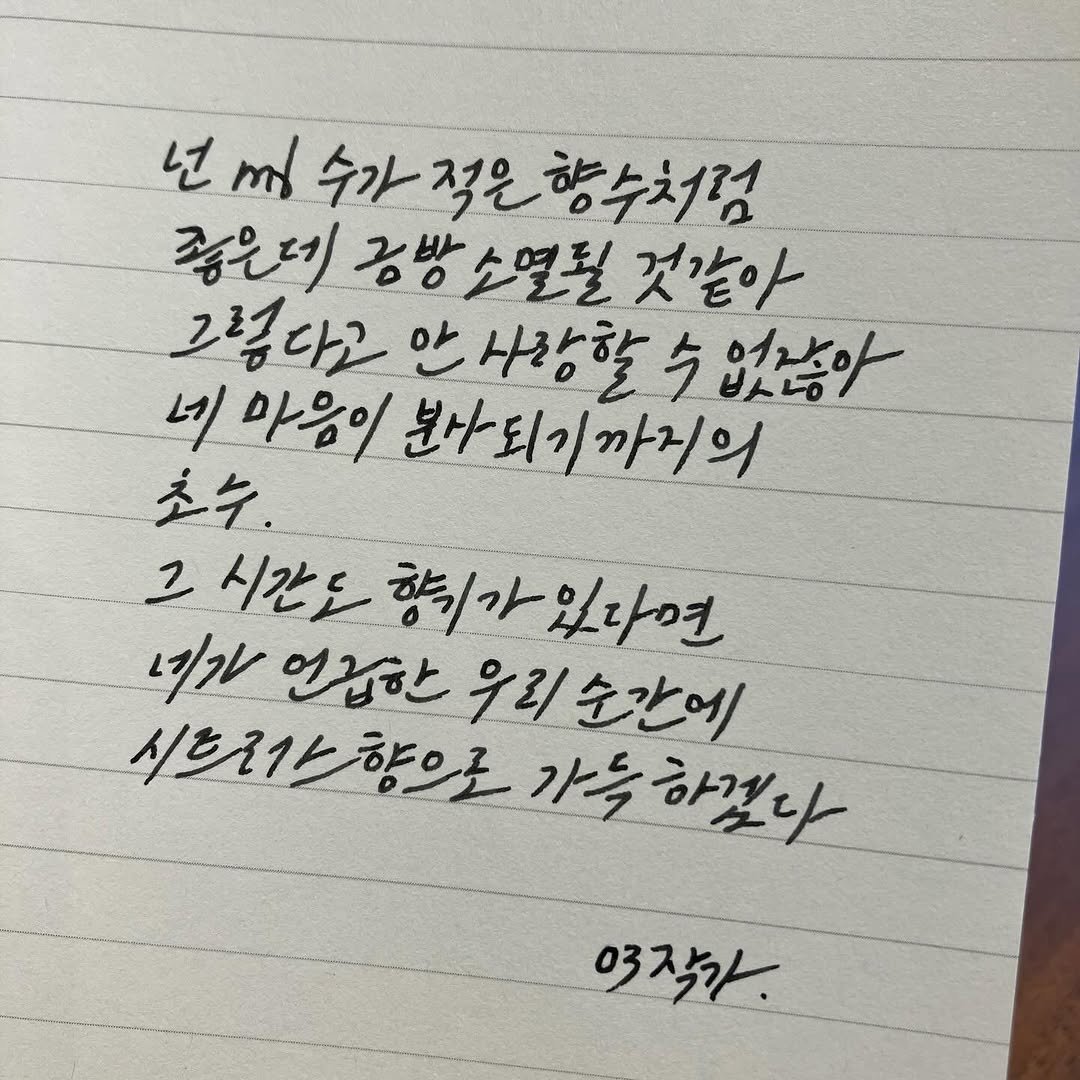 넌 ml 수가 적은 향수처럼
좋은데 금방 소멸될 것같아
그렇다고 안 사랑할 수 없잖아
네 마음이 분사되기까지의
초수.
그 시간도 향기가 있다면
네가 언급한 우리 순간에
시트러스 향으로 가득하겠다
03작가.